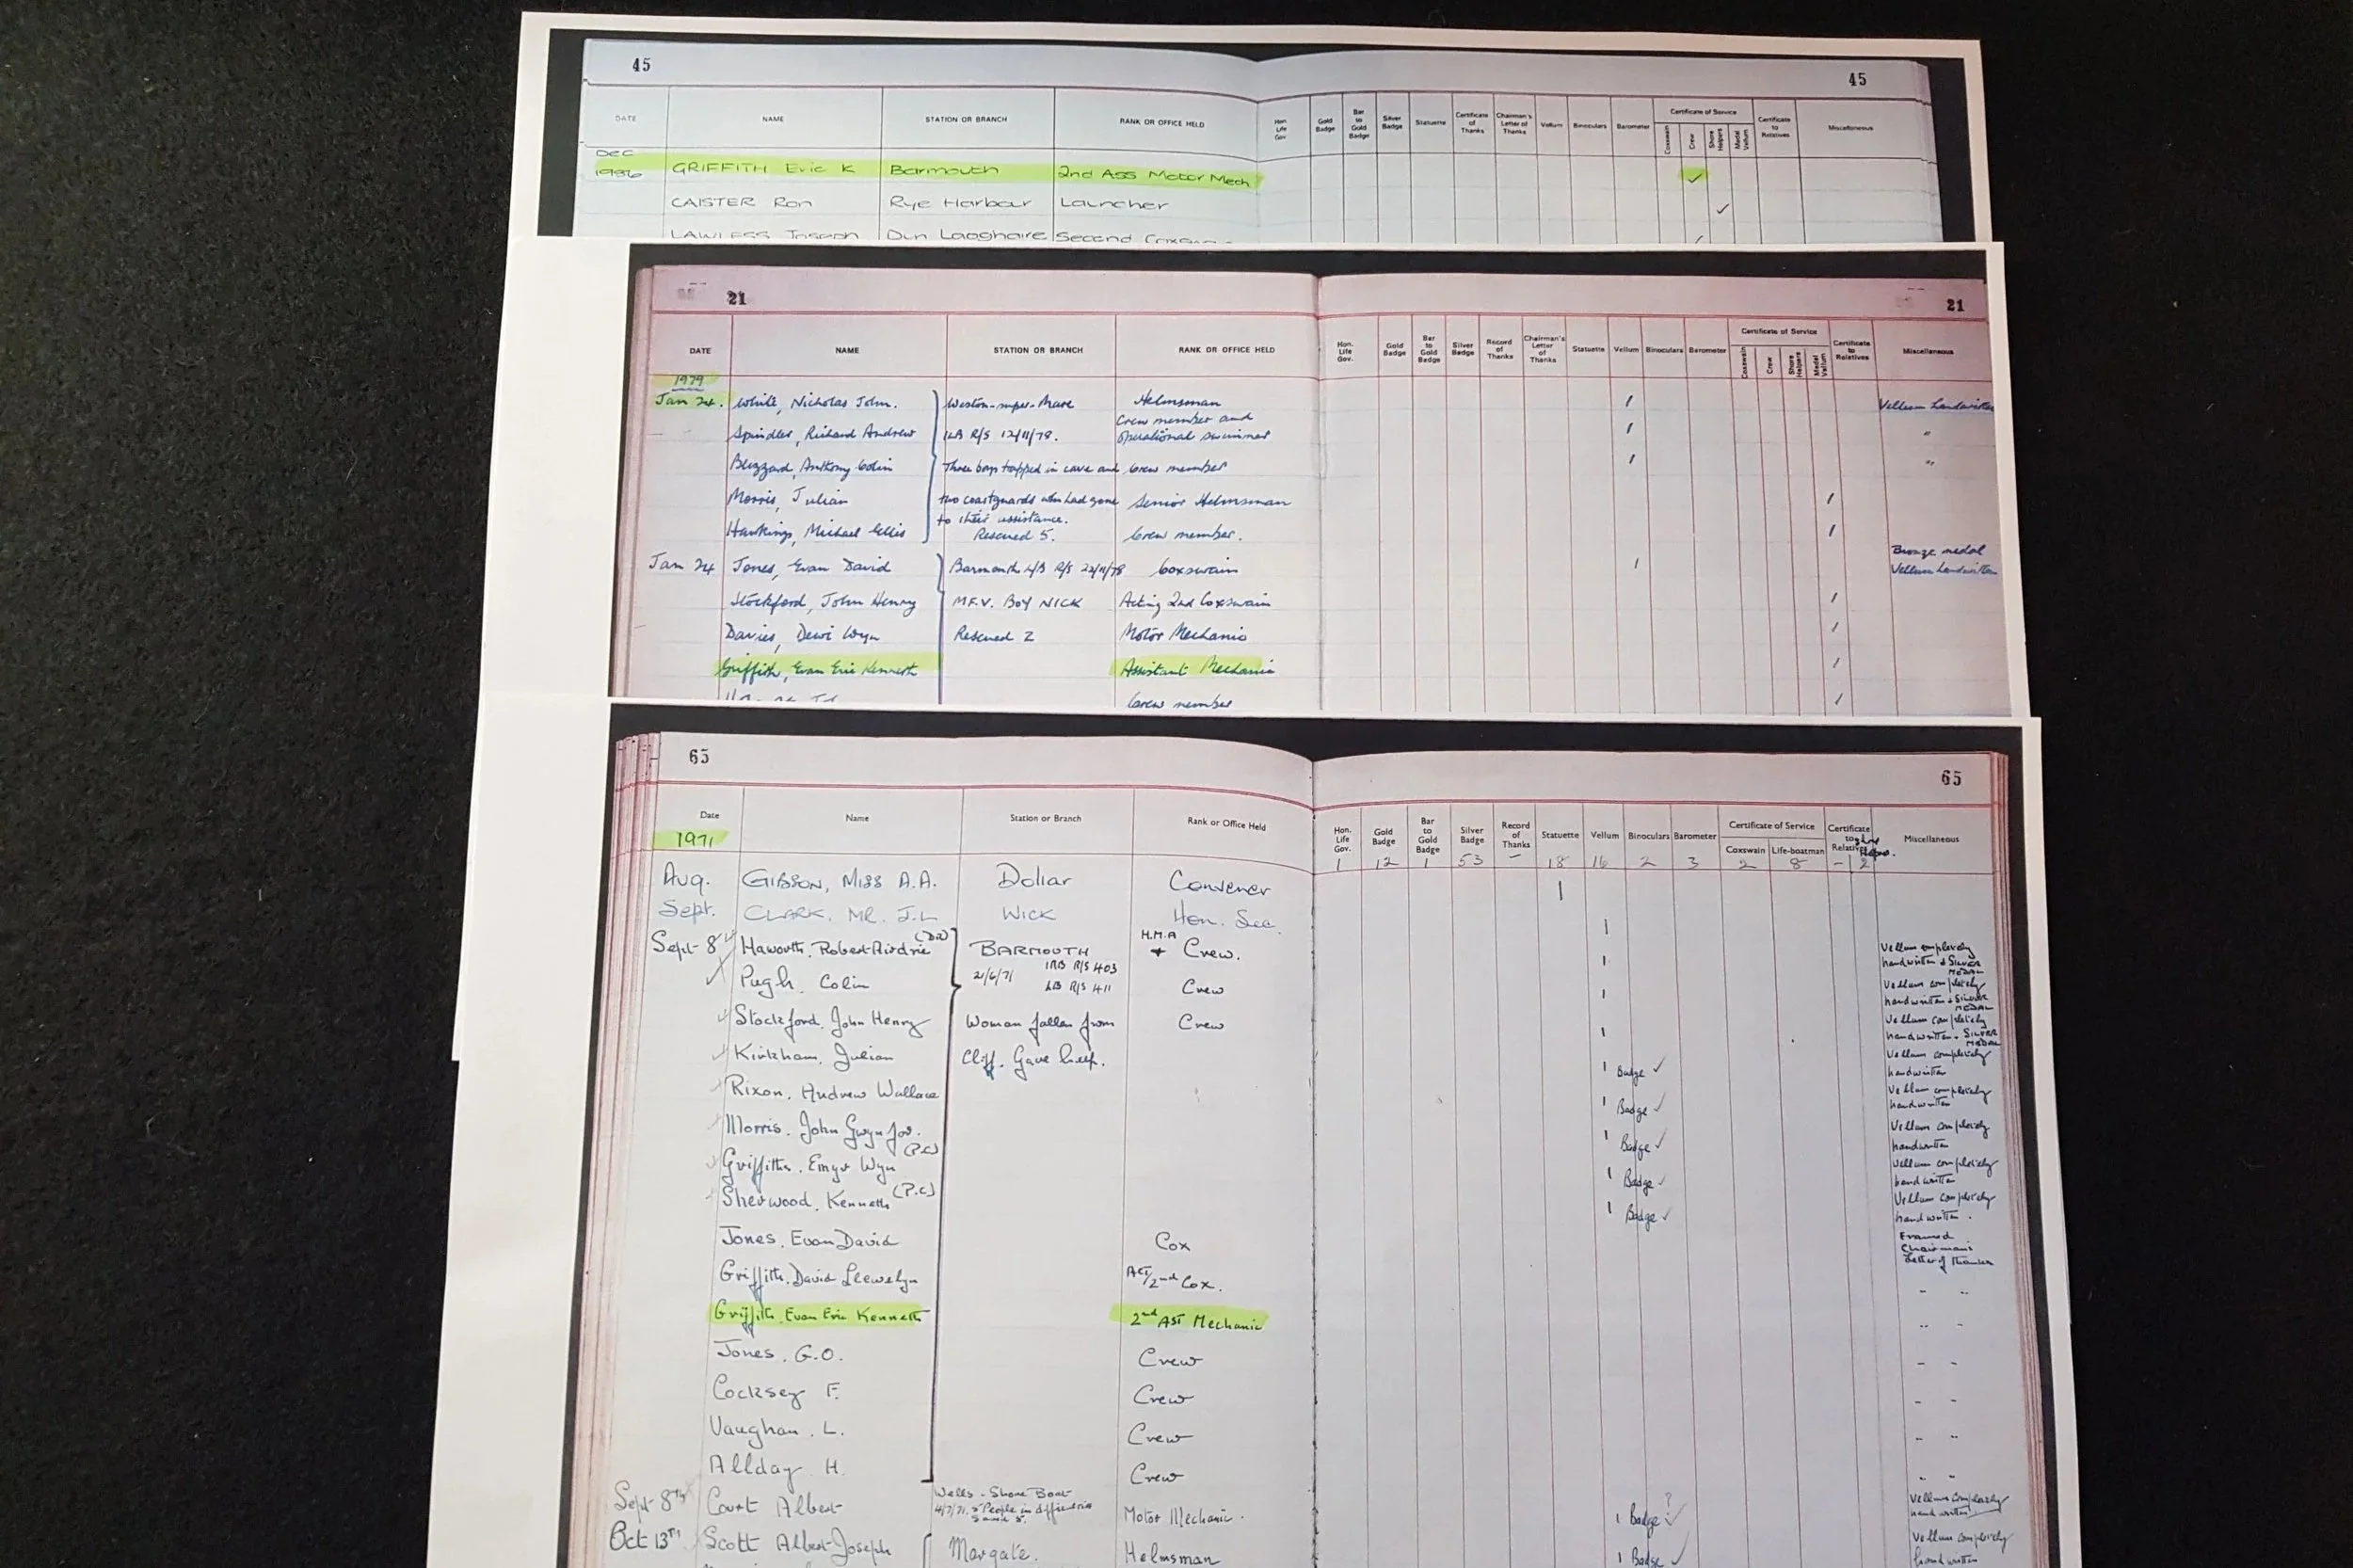 45 45
DATE NAME STATION OR BRANCH RANK OR OFFICE HELD Hon Life Gov Gold Badge Bar to Gold Badge Silver Badge Statuette Certificate of Thanks Chairman's Letter of Thanks Vellum Binoculars Barometer Certificate of Service Coxswain Crew Shore Helpers Medal Vellum Certificate to Relatives Miscellaneous
DEC
1986 GRIFFITH Eric K Barmouth 2nd ASS Motor Mech ✓
CAISTER Ron Rye Harbour Launcher ✓
LAWLESS Joseph Dun Laoghaire Second Coxswain
21 21
DATE NAME STATION OR BRANCH RANK OR OFFICE HELD Hon. Life Gov. Gold Badge Bar to Gold Badge Silver Badge Record of Thanks Chairman's Letter of Thanks Statuette Vellum Binoculars Barometer Certificate of Service Coxswain Crew Shore Helpers Medal Vellum Certificate to Relatives Miscellaneous
1979
Jan 24. White, Nicholas John. Weston-super-Mare Helmsman / Vellum handwritten
Spindler, Richard Andrew ILB R/S 12/11/78. Crew member and operational swimmer / "
Blizzard, Anthony Colin Three boys trapped in cave and Crew member / "
Morris, Julian two coastguards who had gone Senior Helmsman /
to their assistance.
Hawkings, Michael Ellis Rescued 5. Crew member. /
Jan 24 Jones, Evan David Barmouth L/B R/S 22/11/78 Coxswain / Bronze medal Vellum handwritten
Stockford, John Henry M.F.V. BOY NICK Acting 2nd Coxswain /
Davies, Dewi Wyn Rescued 2 Motor Mechanic /
Griffith, Evan Eric Kenneth Assistant Mechanic /
Crew member /
65 65
Date Name Station or Branch Rank or Office Held Hon. Life Gov. Gold Badge Bar to Gold Badge Silver Badge Record of Thanks Statuette Vellum Binoculars Barometer Certificate of Service Coxswain Life-boatman Certificate to Relatives Miscellaneous
1971 1 12 1 53 - 18 16 2 3 2 8 - 2
Aug. GIBSON, MISS A.A. Dollar Convener 1
Sept. CLARK. MR. J.L WICK Hon. Sec. 1
Sept-8 Haworth. Robert Airdrie (DR) BARMOUTH H.M.A + Crew. 1 Vellum completely handwritten & SILVER MEDAL
Pugh. Colin 21/6/71 IRB R/S 403 LB R/S 411 Crew 1 Vellum completely handwritten + SILVER MEDAL
Stockford. John Henry Woman fallen from Crew 1 Vellum completely handwritten - SILVER MEDAL
Kirkham. Julian Cliff. Gave help. 1 Badge ✓ Vellum completely handwritten
Rixon. Andrew Wallace 1 Badge ✓ Vellum completely handwritten
Morris. John Gwynfor. 1 Badge ✓ Vellum completely handwritten
Griffiths. Emyr Wyn (P.C) 1 Badge ✓ Vellum completely handwritten
Sherwood. Kenneth (P.C) 1 Badge ✓ Vellum completely handwritten.
Jones. Evan David Cox Framed Chairman's Letter of Thanks
Griffith. David Llewelyn Act/2nd Cox. " "
Griffith. Evan Eric Kenneth 2nd AST Mechanic " "
Jones. G.O. Crew " "
Cocksey F. Crew " "
Vaughan. L. Crew " "
Allday H. Crew " "
Sept-8th Court Albert Wells - Shore Boat 4/7/71. 5 People in difficulties Motor Mechanic. 1 Badge ? ✓ Vellum completely handwritten
Oct 13TH Scott Albert Joseph Margate. Helmsman 1 Badge ✓ Vellum completely handwritten